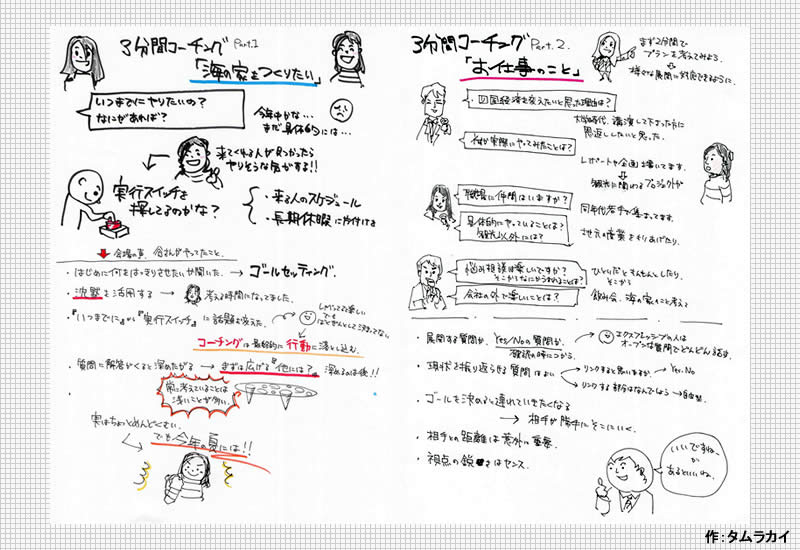 3分間コーチング Part.1
「海の家をつくりたい」
いつまでにヤリたいの？
なにがあれば？
今年中かな…
まだ具体的には…
来てくれる人が見つかったら
ヤリそうな気がする!!
実行スイッチを
探してるのかな？
・来る人のスケジュール
・長期休暇に片付ける
会場の声、谷さんがやってたこと、
・はじめに何をはっきりさせたいか聞いた。→ ゴールセッティング。
・沈黙を活用する → 考える時間になってました。
・『いつまでに』から『実行スイッチ』に話題を変えた。
しゃべってて楽しい
でも
コーチングは最終的に行動に落とし込む。
・質問に解答がくると深めたがる → まずは広げる『他には？』深めるのは後!!
常に考えていることは
浅いことが多い。
実はちょっとめんどくさい。
でも今年の夏には!!
3分間コーチング Part.2.
「お仕事のこと」
まず2分間で
プランを考えてみよう。
様々な展開に対応できるように。
・四国経済を変えたいと思った理由は？
大学時代、講演して下さった方に
恩返ししたいと思った。
・何か実際にやってみたことは？
レポートや企画書いてます。
観光に関わるプロジェクトが
・職場に仲間はいますか？
同年代若手で集まってます。
・具体的にやっていることは？
観光以外には？
地元の産業をもりあげたり。
・悩み相談は楽しいですか？
・会社の外で楽しいことは？
飲み会、海の家のこと考える
・展開する質問か、Yes/Noの質問か、
確認の時につかう。
エクスプレッシブの人は
オープンな質問でどんどん話す。
・現状を振り返らせる質問はよい
リンクすると思いますか、→ Yes.No
リンクする部分はなんでしょう → 自由型。
・ゴールを決めると連れていきたくなる
→ 相手が勝手にそこにいく。
・相手との距離は意外に重要。
・視点の鋭さはセンス。
いいですねー
が
あるといいね。
作：タムラカイ